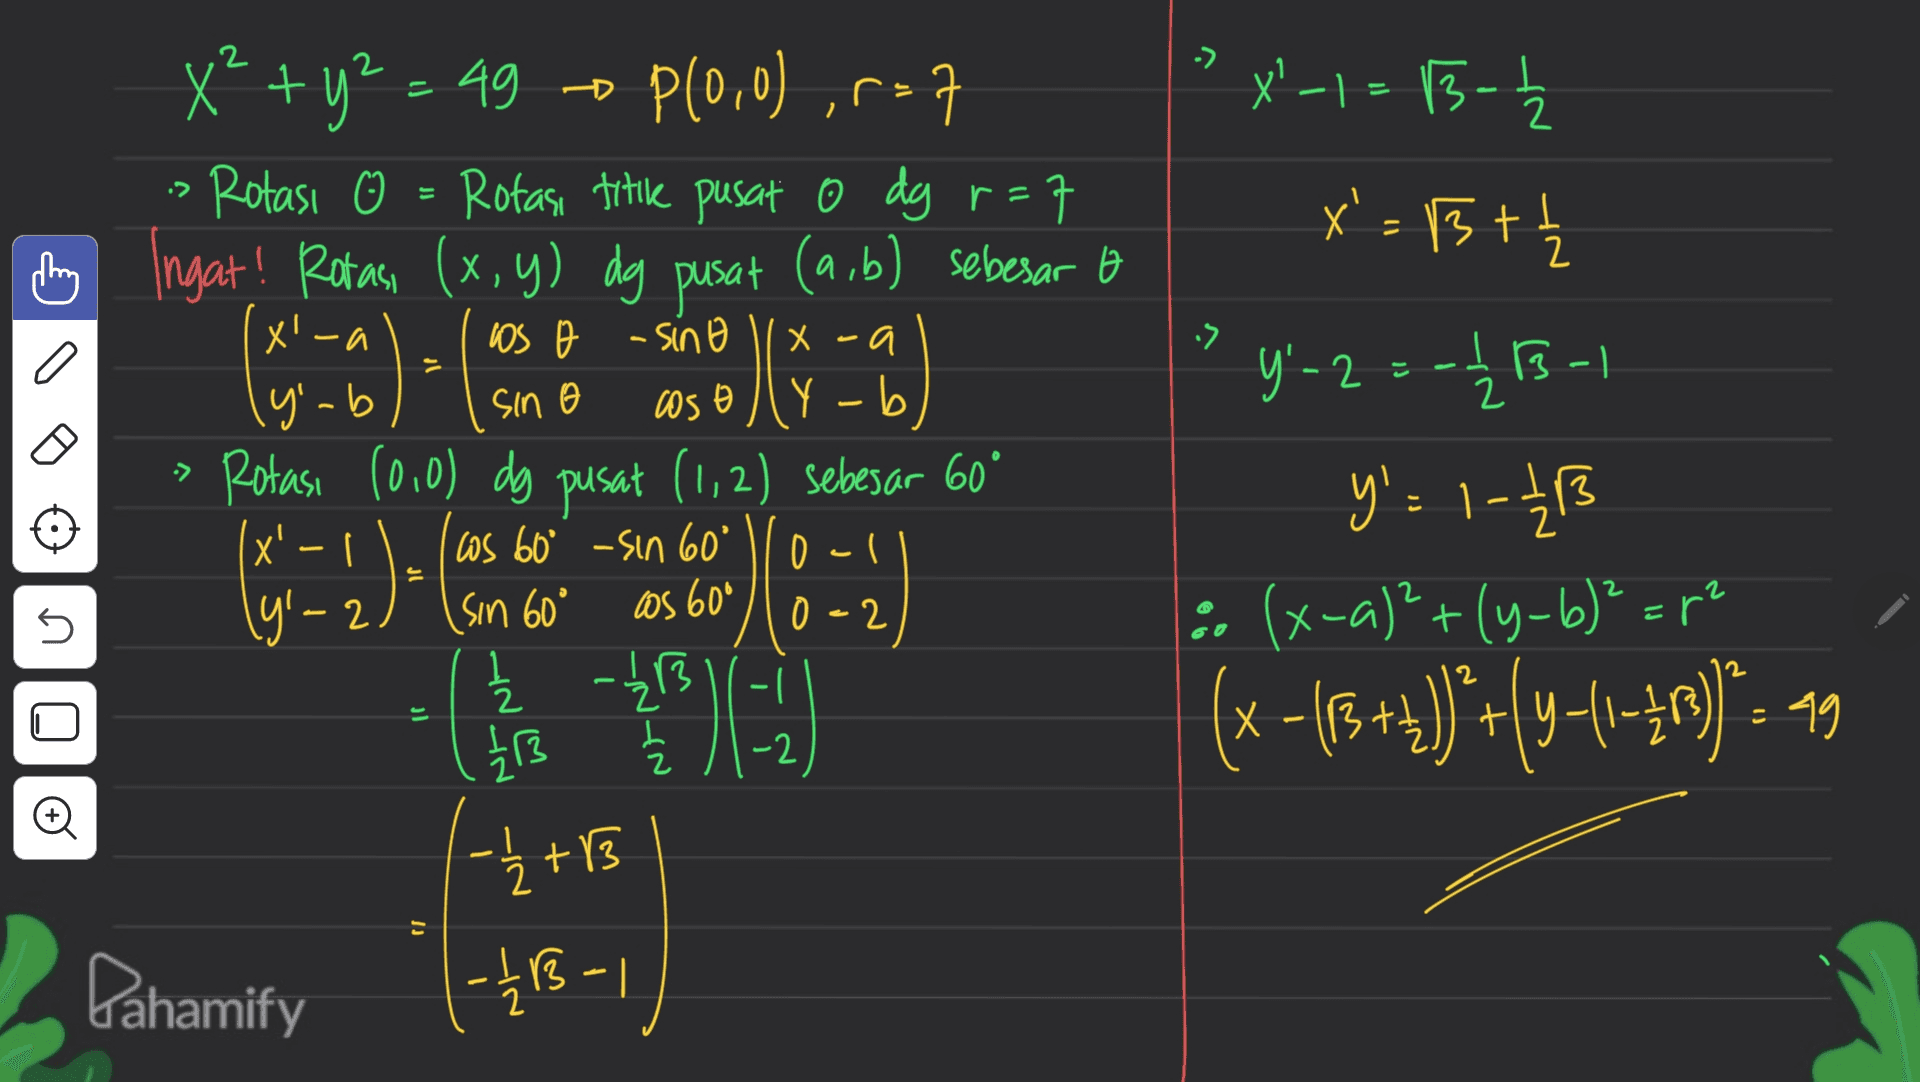 x² + y² = 49 → P(0,0) , r = 7
∴> Rotasi O = Rotasi titik pusat O dg r = 7
Ingat! Rotasi (x, y) dg pusat (a, b) sebesar θ
(x' - a / y' - b) = (cos θ -sin θ / sin θ cos θ)(x - a / y - b)
∴> Rotasi (0,0) dg pusat (1,2) sebesar 60°
(x' - 1 / y' - 2) = (cos 60° -sin 60° / sin 60° cos 60°)(0 - 1 / 0 - 2)
= (1/2 -1/2 √3 / 1/2 √3 1/2)(-1 / -2)
= (-1/2 + √3 / -1/2 √3 - 1)
∴> x' - 1 = √3 - 1/2
x' = √3 + 1/2
∴> y' - 2 = -1/2 √3 - 1
y' = 1 - 1/2 √3
∴ (x - a)² + (y - b)² = r²
(x - (√3 + 1/2))² + (y - (1 - 1/2 √3))² = 49
Pahamify